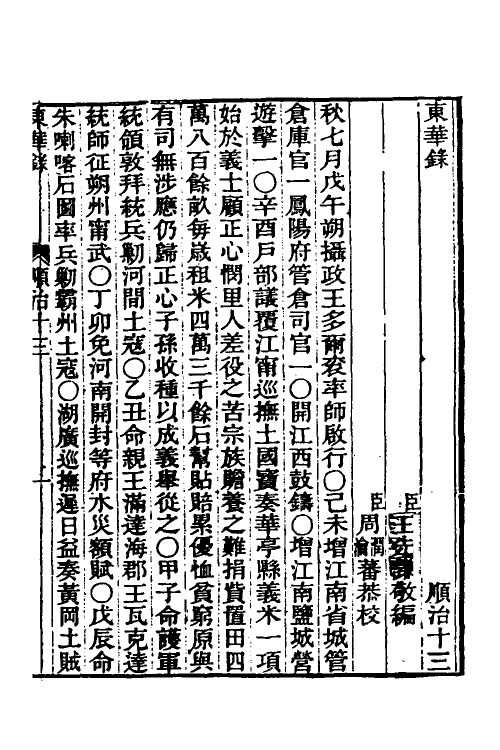 東華錄 順治十三
臣王先謙敬編
臣周潤蕃瀹蕃恭校
秋七月戊午朔攝政王多爾袞率師啟行〇己未增江南省城管
倉庫官一鳳陽府管倉司官一〇開江西鼓鑄〇增江南鹽城營
遊擊一〇辛酉戶部議覆江甯巡撫土國寶奏華亭縣義米一項
始於義士顧正心憫里人差役之苦宗族贍養之難捐貲置田四
萬八百餘畝每歲租米四萬三千餘石幫貼賠累優恤貧窮原與
有司無涉應仍歸正心子孫收種以成義舉從之〇甲子命護軍
統領敦拜統兵剿河間土寇〇乙丑命親王滿達海郡王瓦克達
統師征朔州甯武〇丁卯免河南開封等府水災額賦〇戊辰命
朱喇喀石圖率兵剿霸州土寇〇湖廣巡撫遲日益奏黃岡土賊
東華錄 順治十三 一